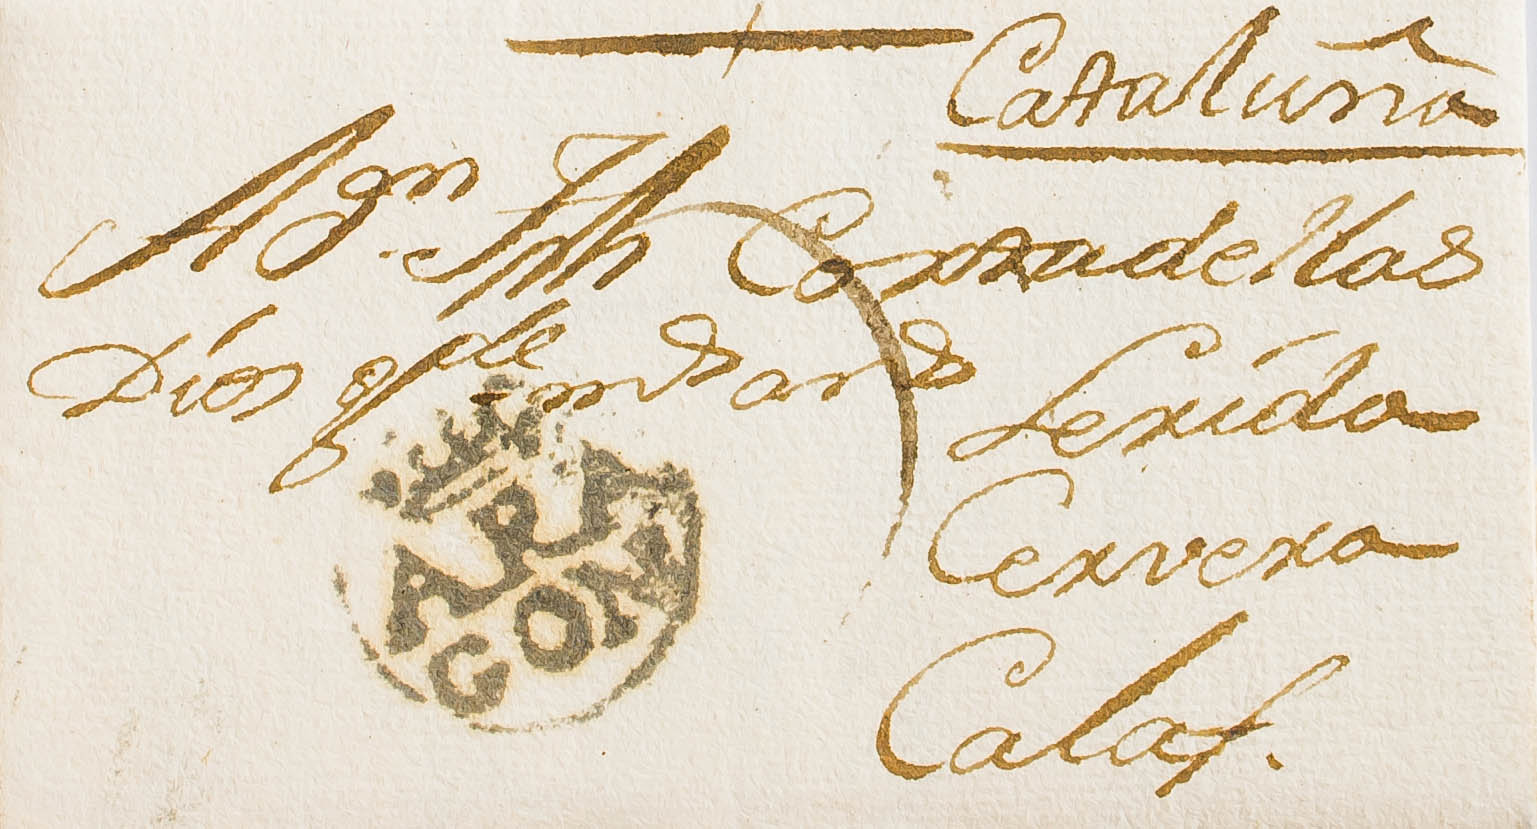 Cataluña
A Dgn. Jph Cortadellas
Dios gde ms as
Lerida
Cervera
Calaf.
ARA
GON